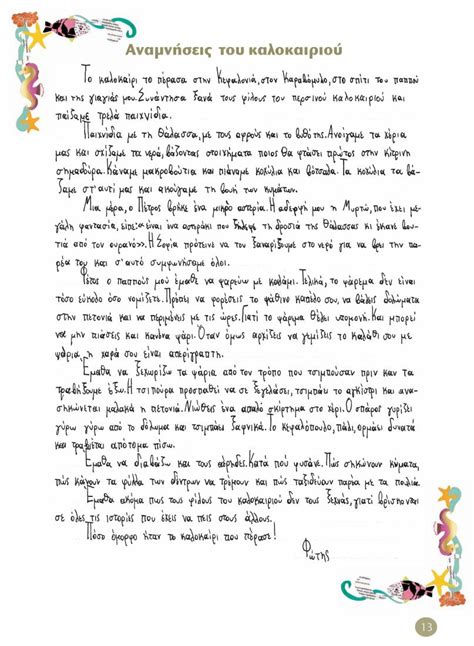 Αναμνήσεις του καλοκαιριού
Το καλοκαίρι το πέρασα στην Κεφαλονιά, στον Καραβόμυλο, στο σπίτι του παππού
και της γιαγιάς μου. Συνάντησα ξανά τους φίλους του περσινού καλοκαιριού και
παίξαμε τρελά παιχνίδια.
Παιχνίδια με τη θάλασσα, με τους αφρούς και το βυθό της. Ανοίγαμε τα χέρια
μας και σχίζαμε τα νερά, βάζοντας στοιχήματα ποιος θα φτάσει πρώτος στην κίτρινη
σημαδούρα. Κάναμε μακροβούτια και πιάναμε κοχύλια και βότσαλα. Τα κοχύλια τα βά-
ζαμε στ' αυτί μας και ακούγαμε τη βουή των κυμάτων.
Μια μέρα, ο Πέτρος βρήκε ένα μικρό αστερία. Η αδερφή μου η Μυρτώ, που έχει με-
γάλη φαντασία, είπε: «είναι ένα αστεράκι που ζήλεψε τη δροσιά της θάλασσας κι έκανε βου-
τιά από τον ουρανό». Η Σοφία πρότεινε να τον ξαναρίξουμε στο νερό για να βρει την πα-
ρέα του και σ' αυτό συμφωνήσαμε όλοι.
Φέτος ο παππούς μου έμαθε να ψαρεύω με καλάμι. Τελικά, το ψάρεμα δεν είναι
τόσο εύκολο όσο νομίζετε. Πρέπει να φορέσεις το ψάθινο καπέλο σου, να βάλεις δολώματα
στην πετονιά και να περιμένεις με τις ώρες. Γιατί το ψάρεμα θέλει υπομονή. Και μπορεί
να μην πιάσεις και κανένα ψάρι. Όταν όμως αρχίζεις να γεμίζεις το καλάθι σου με
ψάρια, η χαρά σου είναι απερίγραπτη.
Έμαθα να ξεχωρίζω τα ψάρια από τον τρόπο που τσιμπούσαν πριν καν τα
τραβήξουμε έξω. Η τσιπούρα προσπαθεί να σε ξεγελάσει, τσιμπάει το αγκίστρι και ανα-
σηκώνεται μαλακά η πετονιά. Νιώθεις ένα απαλό σκίρτημα στο χέρι. Ο σπάρος γυρίζει
γύρω γύρω από το δόλωμα και τσιμπάει ξαφνικά. Το κεφαλόπουλο, πάλι, ορμάει δυνατά
και τραβιέται απότομα πίσω.
Έμαθα να διαβάζω και τους αέρηδες. Κατά πού φυσάνε. Πώς σηκώνουν κύματα,
πώς κάνουν τα φύλλα των δέντρων να τρέμουν και πώς ταξιδεύουν παρέα με τα πουλιά.
Έμαθα ακόμα πως τους φίλους του καλοκαιριού δεν τους ξεχνάς, γιατί βρίσκονται
σε όλες τις ιστορίες που έχεις να πεις στους άλλους.
Πόσο όμορφο ήταν το καλοκαίρι που πέρασε!
Φώτης
13